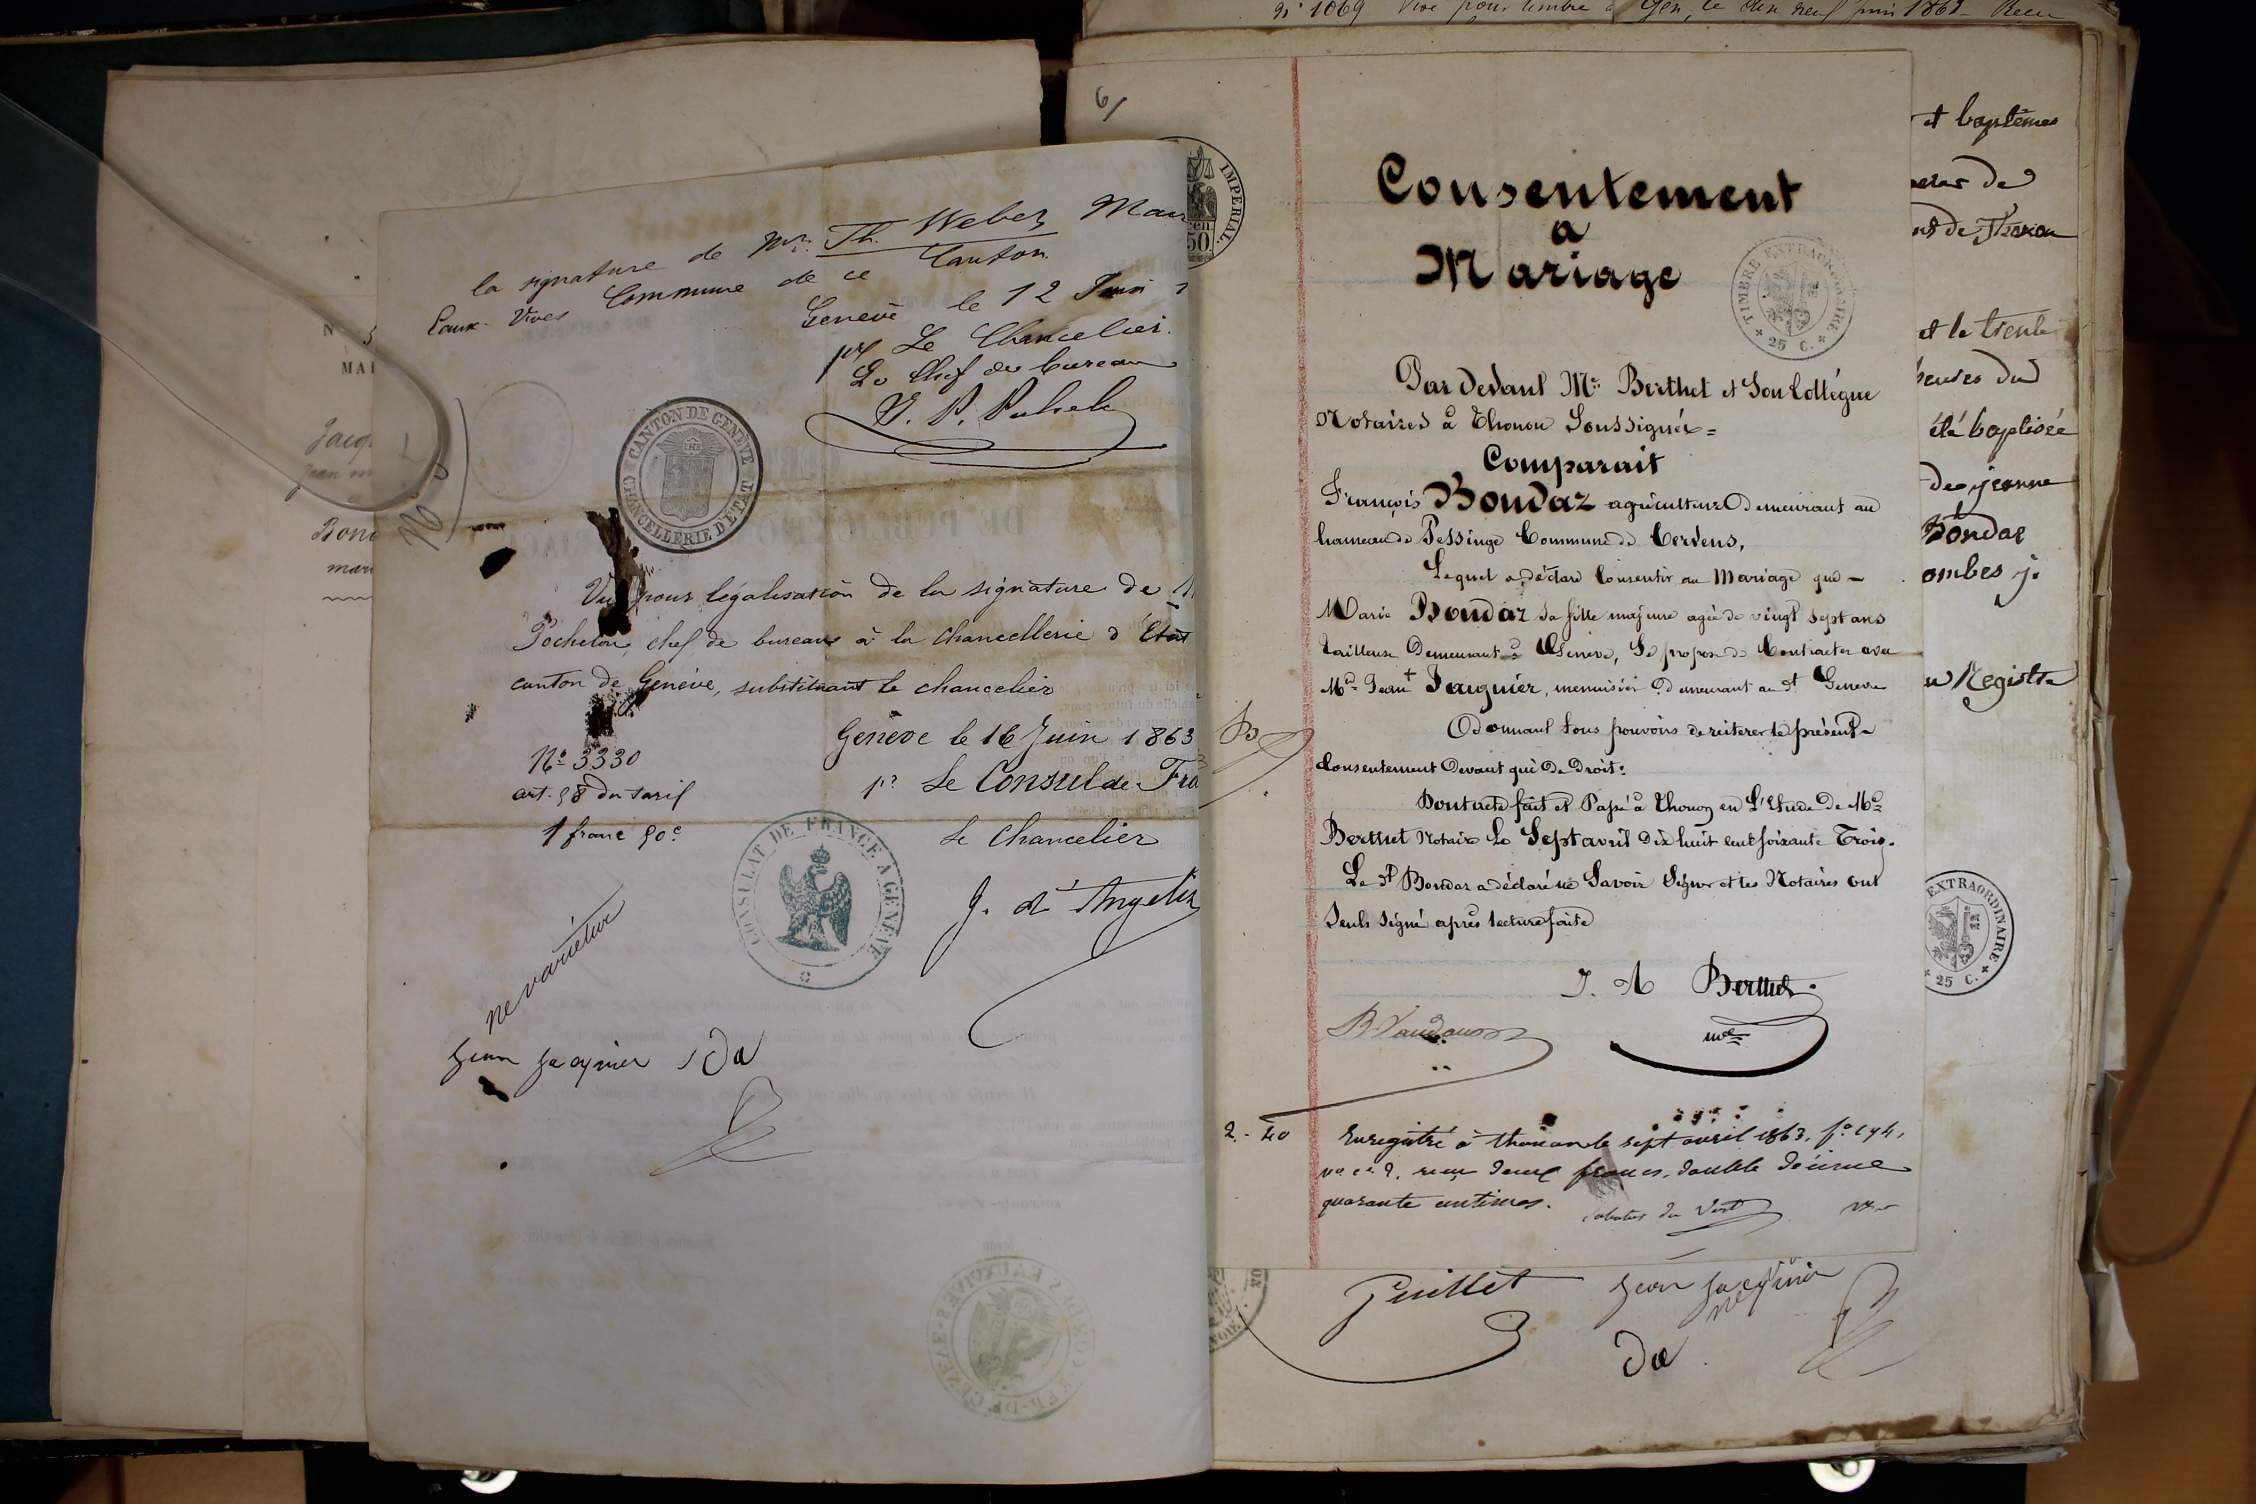 la signature de Mr. Th. Weber, Mai
Eaux-Vives Commune de ce Canton
Genève le 12 Juin 1
pr Le Chancelier
Le Chef de bureau
CANTON DE GENÈVE
CHANCELLERIE D'ETAT
Vu pour légalisation de la signature de M
Pochelon, chef de bureau à la chancellerie d'Etat
canton de Genève, substituant le chancelier
Genève le 16 Juin 1863
No 3330
art. 58 du tarif
1 franc 50c
pr Le Consul de Fra
Le Chancelier
J. d'Angelis
CONSULAT DE FRANCE A GENÈVE
ne varietur
Jean Jacquier
No
MAI
Jacq
Jean m
Bond
mari
No 1069 Visé pour timbre à Gen, le dix neuf juin 1863 Reçu
6/
IMPERIAL
50
Consentement
a
Mariage
TIMBRE EXTRAORDINAIRE
25 C.
Par devant Me Berthet et Son Collégue
Notaires à Thonon Soussignés=
Comparait
François Bondaz agriculteur Demeurant au
hameau de Pessinge Commune de Cervens,
Lequel a déclaré Consentir au Mariage que
Marie Bondaz Sa fille majeure agée de vingt sept ans
tailleuse Demeurant à Genève, Se propose de Contracter avec
Mr Jean Jacquier, menuisier Demeurant au dt Genève
Donnant tous pouvoirs de reiterer le présent
Consentement Devant qui De Droit:
Dont acte fait et Passé à Thonon en L'Etude De Me
Berthet Notaire Le Sept avril Dix huit cent soixante Trois.
Le dt Bondaz a déclaré ne Savoir Signer et les Notaires ont
Seuls Signé après lecture faite
J. A Berthet
nre
2.- 40
Enregistré à thonon le sept avril 1863, fo 194,
vo ce 2. reçu deux francs, double décime
quarante centimes.
Jean Jacquier
et baptêmes
de
de Thonon
et le trente
heures du
été baptisée
de jeanne
Bondaz
ombes j.
Registre
EXTRAORDINAIRE
25 C.